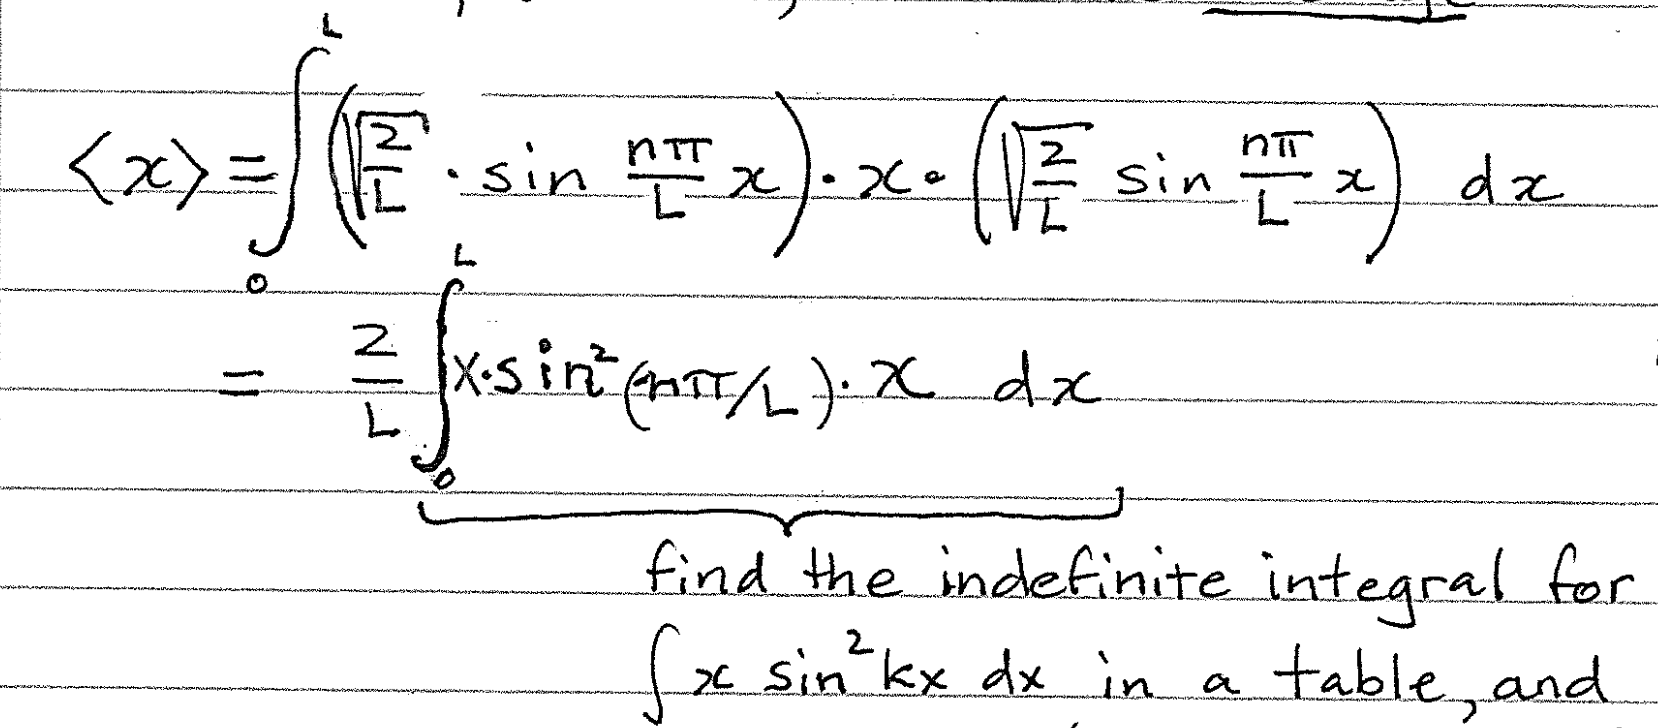 ⟨x⟩ = ∫₀ᴸ (√(2/L) · sin nπ/L x) · x · (√(2/L) sin nπ/L x) dx
= 2/L ∫₀ᴸ x · sin² (nπ/L) · x dx
find the indefinite integral for
∫ x sin² kx dx in a table, and